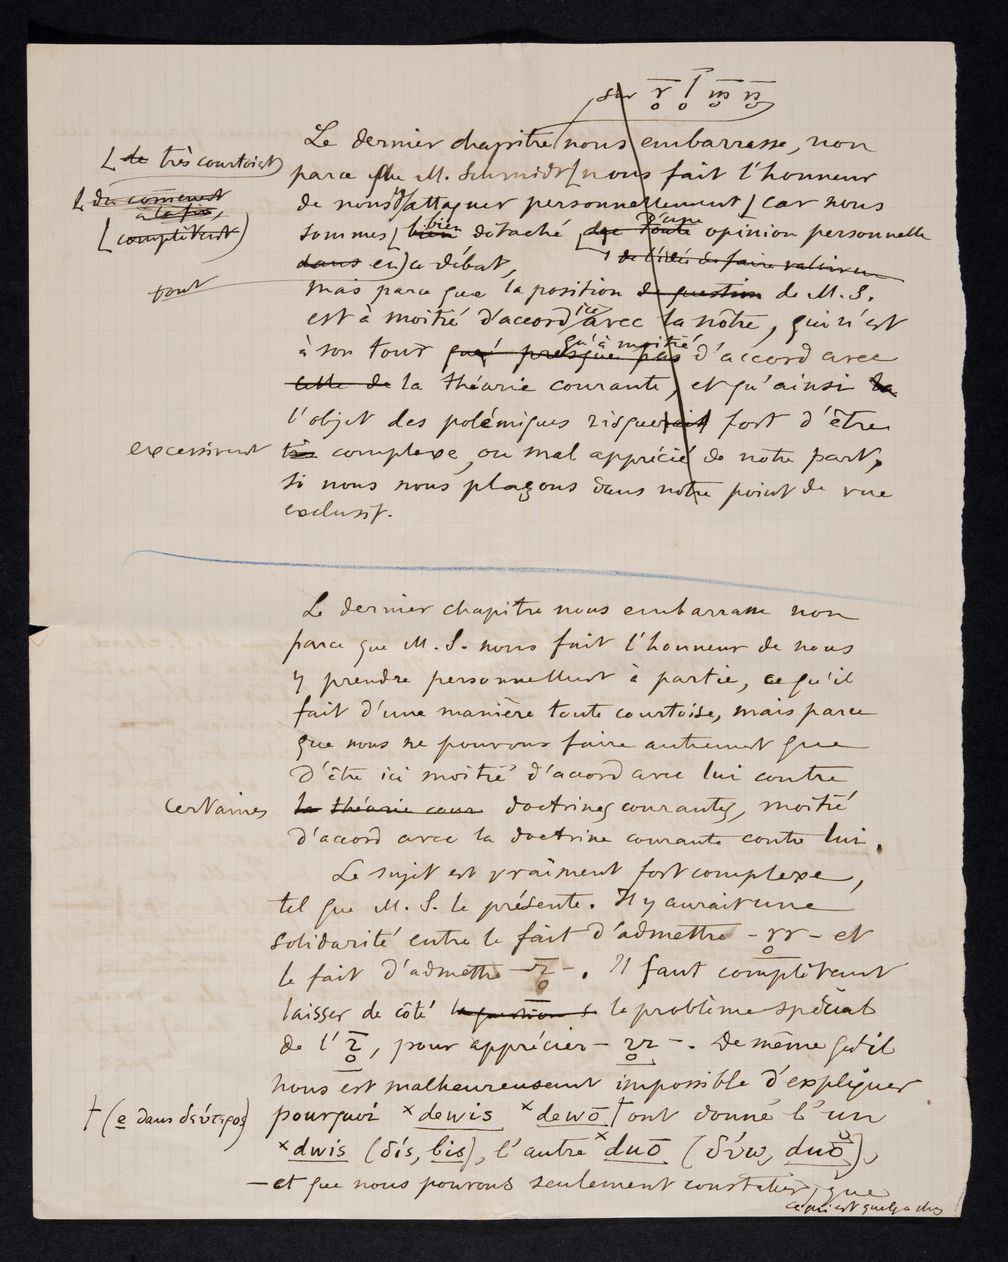 sur r̥̄ l̥̄ m̥̄ n̥̄
Le dernier chapitre nous embarrasse, non
de très courtois
parce que M. Schmidt nous fait l'honneur
du comencest
à la fin,
de nous attaquer personnellement car nous
complètent
sommes bien bien détaché de toute d'une opinion personnelle
dans en ce débat,
tout
mais parce que la position de question de M. S.
est à moitié d'accord ici avec la nôtre, qui n'est
à son tour qu'à moitié d'accord avec
celle de la théorie courante, et qu'ainsi la
l'objet des polémiques risquerait fort d'être
excessivent
très complexe, ou mal apprécié de notre part,
si nous nous plaçons dans notre point de vue
exclusif.
Le dernier chapitre nous embarrasse non
parce que M. S. nous fait l'honneur de nous
y prendre personnellemt à partie, ce qu'il
fait d'une manière toute courtoise, mais parce
que nous ne pouvons faire autrement que
d'être ici moitié d'accord avec lui contre
certaines
la théorie cour doctrines courantes, moitié
d'accord avec la doctrine courante contre lui.
Le sujet est vraiment fort complexe,
tel que M. S. le présente. Il y aurait une
solidarité entre le fait d'admettre - r̥r - et
le fait d'admettre - r̥̄ -. Il faut complètement
laisser de côté la question s le problème spécial
de l' r̥̄, pour apprécier - r̥r -. De même qu'il
nous est malheureusement impossible d'expliquer
† (e dans δεύτερος)
pourquoi ×dewis ×dewō † ont donné l'un
×dwis (δίς, bis), l'autre ×duō (δύω, duŏ̄),
— et que nous pouvons seulement constater, que
ce qui est quelq chos